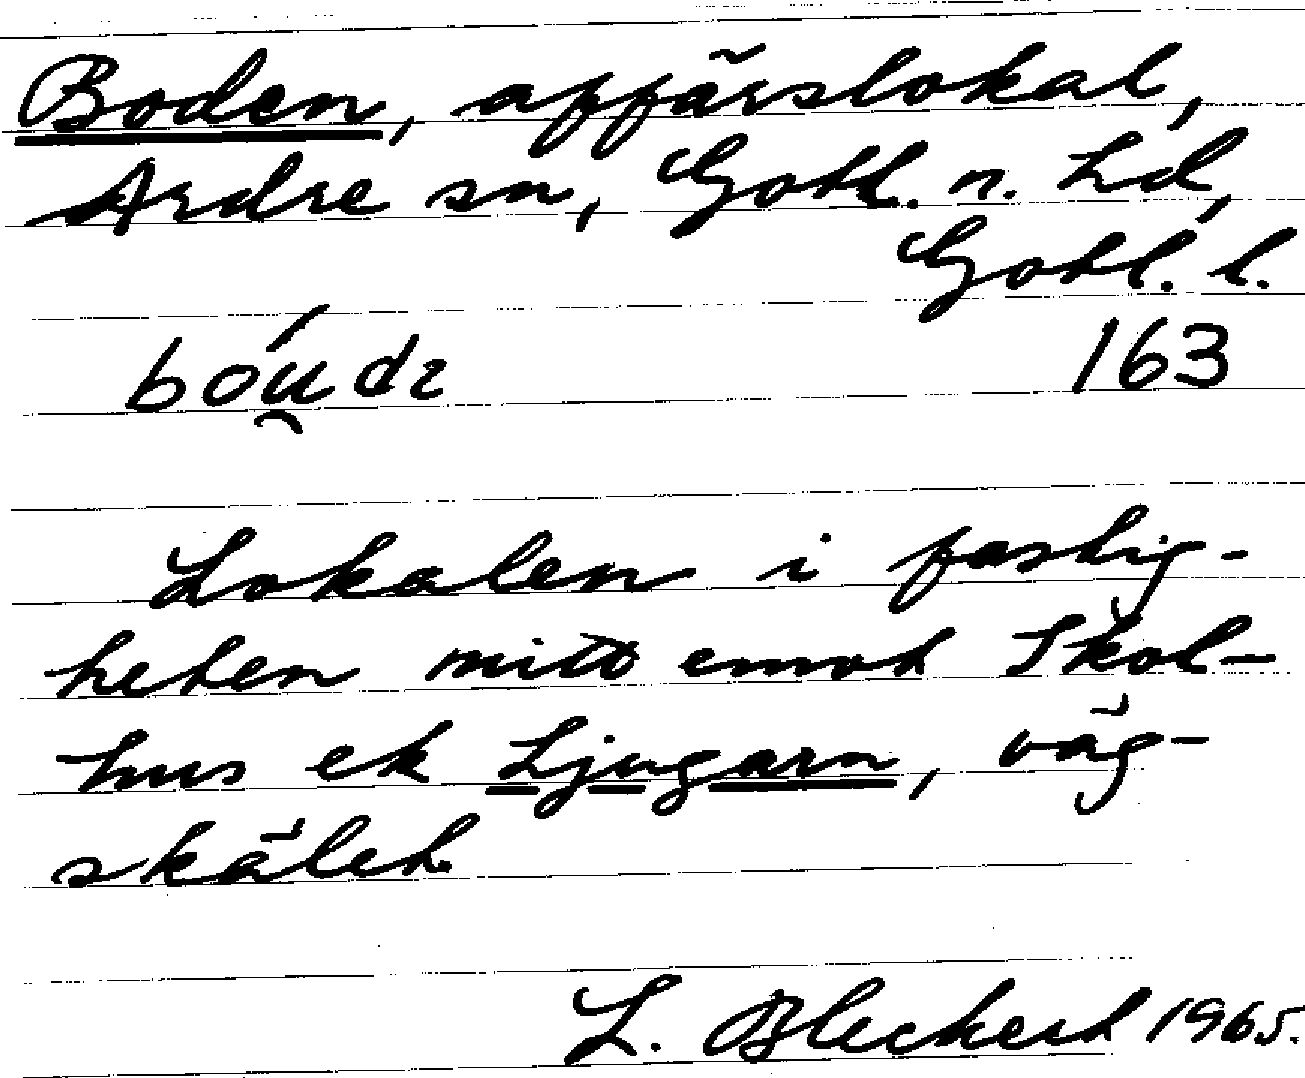 Boden, affärslokal,
Ardre sn, Gotl. n. hd,
Gotl. l.
boú̯dɿ 163
Lokalen i fastig-
heten mitt emot Skol-
hus ek Ljugarn, väg-
skälet.
L. Bleckert 1965.